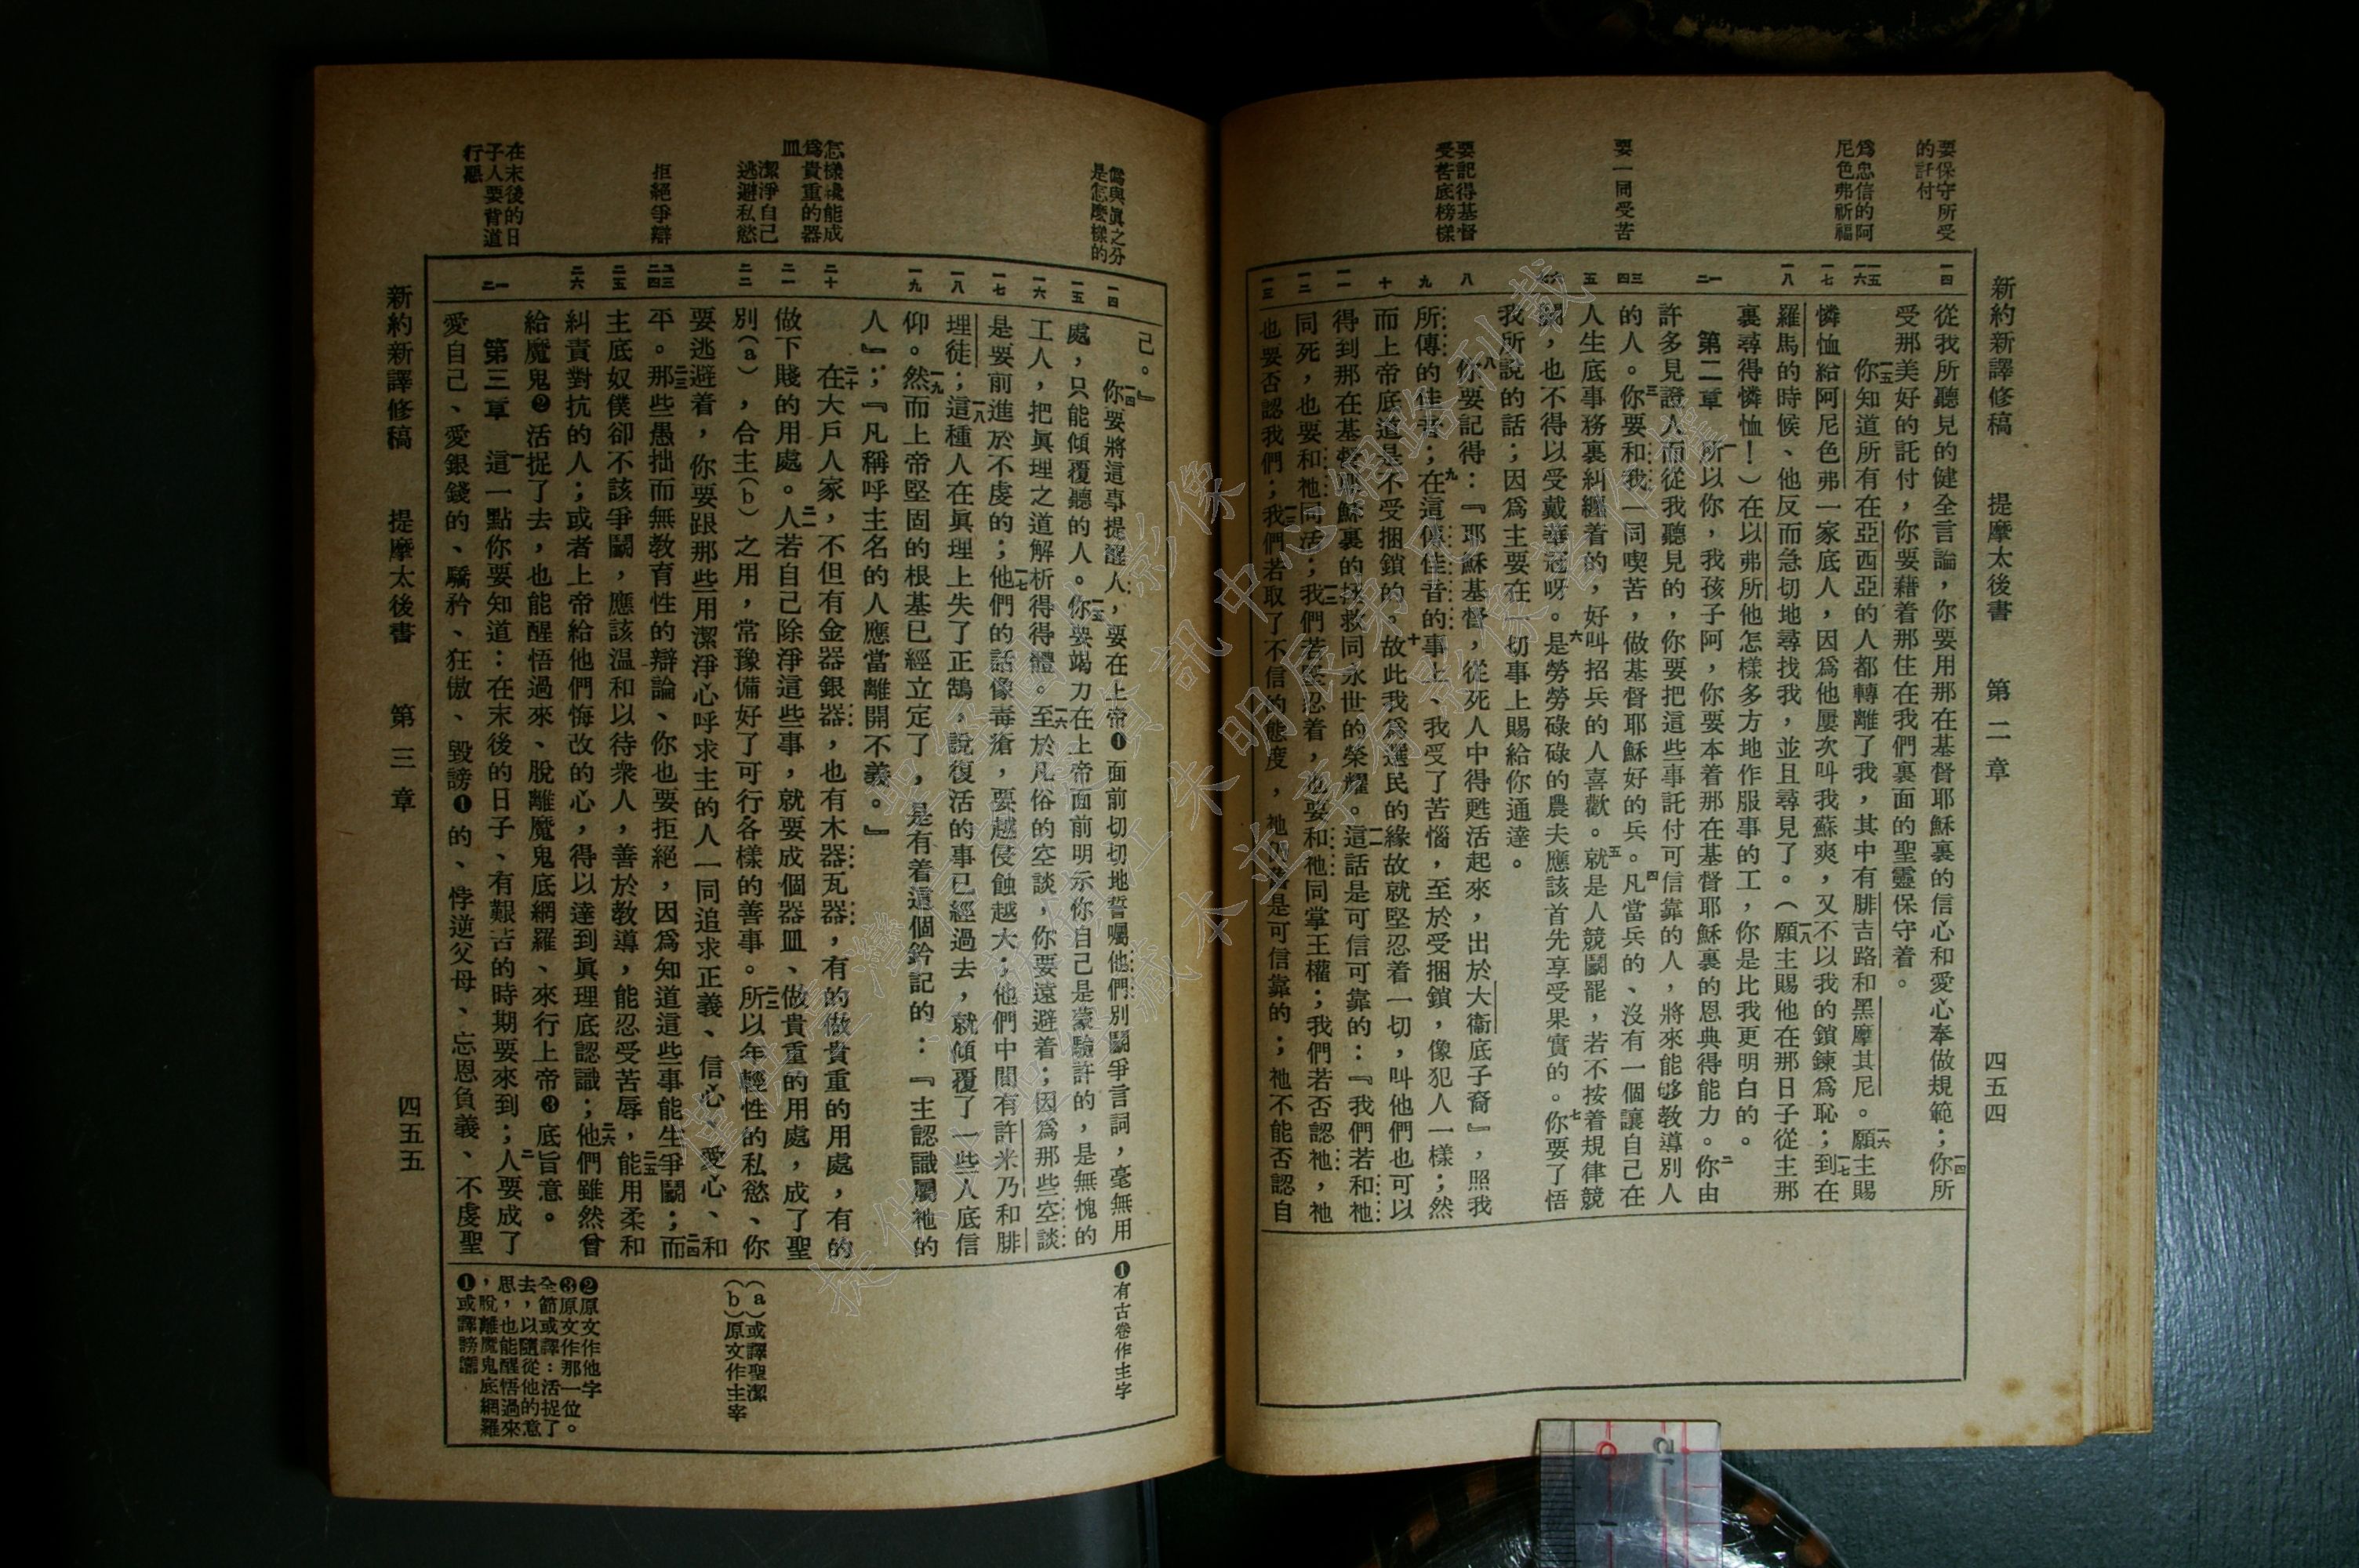 新約新譯修稿 提摩太後書 第二章 四五四
要保守所受
的託付
爲忠信的阿
尼色弗祈福
要一同受苦
要記得基督
受苦底榜樣
一四
一五
一六
一七
一八
一
二
三
四
五
六
八
九
十
一一
一二
一三
從我所聽見的健全言論，你要用那在基督耶穌裏的信心和愛心奉做規範；一四你所
受那美好的託付，你要藉着那住在我們裏面的聖靈保守着。
一五你知道所有在亞西亞的人都轉離了我，其中有腓吉路和黑摩其尼。一六願主賜
憐恤給阿尼色弗一家底人，因爲他屢次叫我蘇爽，又不以我的鎖鍊爲恥；一七到在
羅馬的時候、他反而急切地尋找我，並且尋見了。（一八願主賜他在那日子從主那
裏尋得憐恤！）在以弗所他怎樣多方地作服事的工，你是比我更明白的。
第二章 一所以你，我孩子阿，你要本着那在基督耶穌裏的恩典得能力。二你由
許多見證人而從我聽見的，你要把這些事託付可信靠的人，將來能够教導別人
的人。三你要和我一同喫苦，做基督耶穌好的兵。四凡當兵的、沒有一個讓自己在
人生底事務裏糾纏着的，好叫招兵的人喜歡。五就是人競鬬罷，若不按着規律競
鬬，也不得以受戴華冠呀。六是勞勞碌碌的農夫應該首先享受果實的。七你要了悟
我所說的話；因爲主要在一切事上賜給你通達。
八你要記得：『耶穌基督，從死人中得甦活起來，出於大衞底子裔』，照我
所傳的佳音；九在這傳佳音的事上、我受了苦惱，至於受捆鎖，像犯人一樣；然
而上帝底道是不受捆鎖的。十故此我爲選民的緣故就堅忍着一切，叫他們也可以
得到那在基督耶穌裏的拯救同永世的榮耀。一一這話是可信可靠的：『我們若和祂
同死，也要和祂同活；一二我們若堅忍着，也要和祂同掌王權；我們若否認祂，祂
也要否認我們；一三我們若取了不信的態度，祂仍舊是可信靠的；祂不能否認自
新約新譯修稿 提摩太後書 第三章 四五五
僞與眞之分
是怎麼樣的
怎樣纔能成
爲貴重的器
皿
潔淨自己
逃避私慾
拒絕爭辯
在末後的日
子人要背道
行惡
一四
一五
一六
一七
一八
一九
二十
二一
二二
二三
二四
二五
二六
一
二
己。』
一四你要將這事提醒人，要在上帝❶面前切切地誓囑他們別鬬爭言詞，毫無用
處，只能傾覆聽的人。一五你要竭力在上帝面前明示你自己是蒙驗許的，是無愧的
工人，把眞理之道解析得得體。一六至於凡俗的空談，你要遠避着；因爲那些空談
是要前進於不虔的；一七他們的話像毒瘡，要越侵蝕越大；他們中間有許米乃和腓
理徒；一八這種人在眞理上失了正鵠，說復活的事已經過去，就傾覆了一些人底信
仰。一九然而上帝堅固的根基已經立定了，是有着這個鈐記的：『主認識屬祂的
人』；『凡稱呼主名的人應當離開不義。』
二十在大戶人家，不但有金器銀器，也有木器瓦器，有的做貴重的用處，有的
做下賤的用處。二一人若自己除淨這些事，就要成個器皿、做貴重的用處，成了聖
別(a)，合主(b)之用，常豫備好了可行各樣的善事。二二所以年輕性的私慾、你
要逃避着，你要跟那些用潔淨心呼求主的人一同追求正義、信心、愛心、和
平。二三那些愚拙而無教育性的辯論、你也要拒絕，因爲知道這些事能生爭鬬；二四而
主底奴僕卻不該爭鬬，應該温和以待衆人，善於教導，能忍受苦辱，二五能用柔和
糾責對抗的人；或者上帝給他們悔改的心，得以達到眞理底認識；二六他們雖然曾
給魔鬼❷活捉了去，也能醒悟過來、脫離魔鬼底網羅、來行上帝❸底旨意。
第三章 一這一點你要知道：在末後的日子、有艱苦的時期要來到；二人要成了
愛自己、愛銀錢的、驕矜、狂傲、毀謗❶的、悖逆父母、忘恩負義、不虔聖
❶有古卷作主字
(a)或譯聖潔
(b)原文作主宰
❷原文作他字
❸原文作那一位。
全節或譯：活捉了
去，以隨從他的意
思，也能醒悟過來
，脫離魔鬼底網羅
❶或譯謗讟